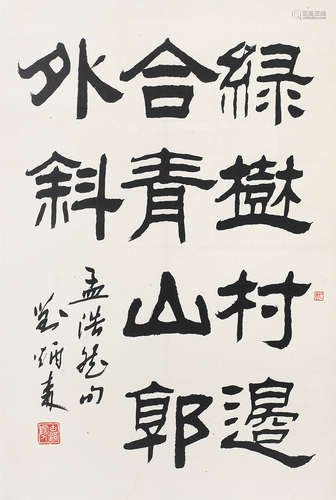 綠樹村邊
合青山郭
外斜
孟浩然句
劉炳森